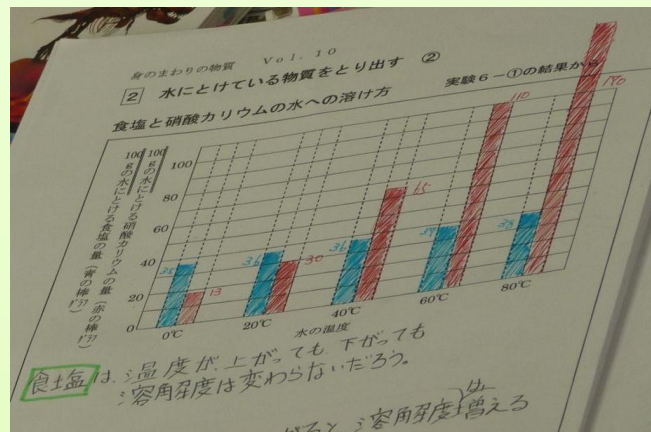 身のまわりの物質 Vol. 10
2 水にとけている物質をとり出す ②
実験6-①の結果から
食塩と硝酸カリウムの水への溶け方
100gの水にとける硝酸カリウムの量(赤の棒グラフ)
100gの水にとける食塩の量(青の棒グラフ)
100
80
60
40
20
0
13
36
30
36
65
110
0℃ 20℃ 40℃ 60℃ 80℃
水の温度
食塩は、温度が、上がっても、下がっても
溶解度は変わらないだろう。
溶解度は増える